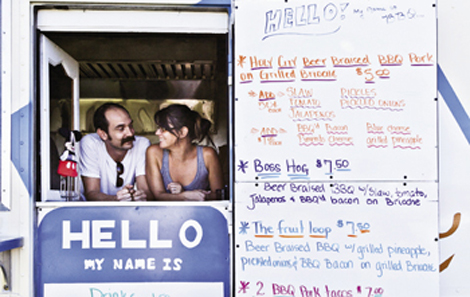 HELLO! My name is
* Holy City Beer Braised BBQ Pork
on Grilled Brioche
$5.00
* ADD SLAW PICKLES
TOMATO PICKLED ONIONS
JALAPENOS
* ADD BBQ'd Bacon Blue cheese
grilled pineapple
* Boss Hog $7.50
Beer Braised BBQ w/ slaw, tomato,
Jalapenos & BBQ'd bacon on Brioche
* The fruit loop $7.50
Beer Braised BBQ w/ grilled pineapple,
pickled onions & BBQ Bacon on grilled Brioche
* 2 BBQ Pork Tacos $7.00
HELLO
MY NAME IS
Drinks